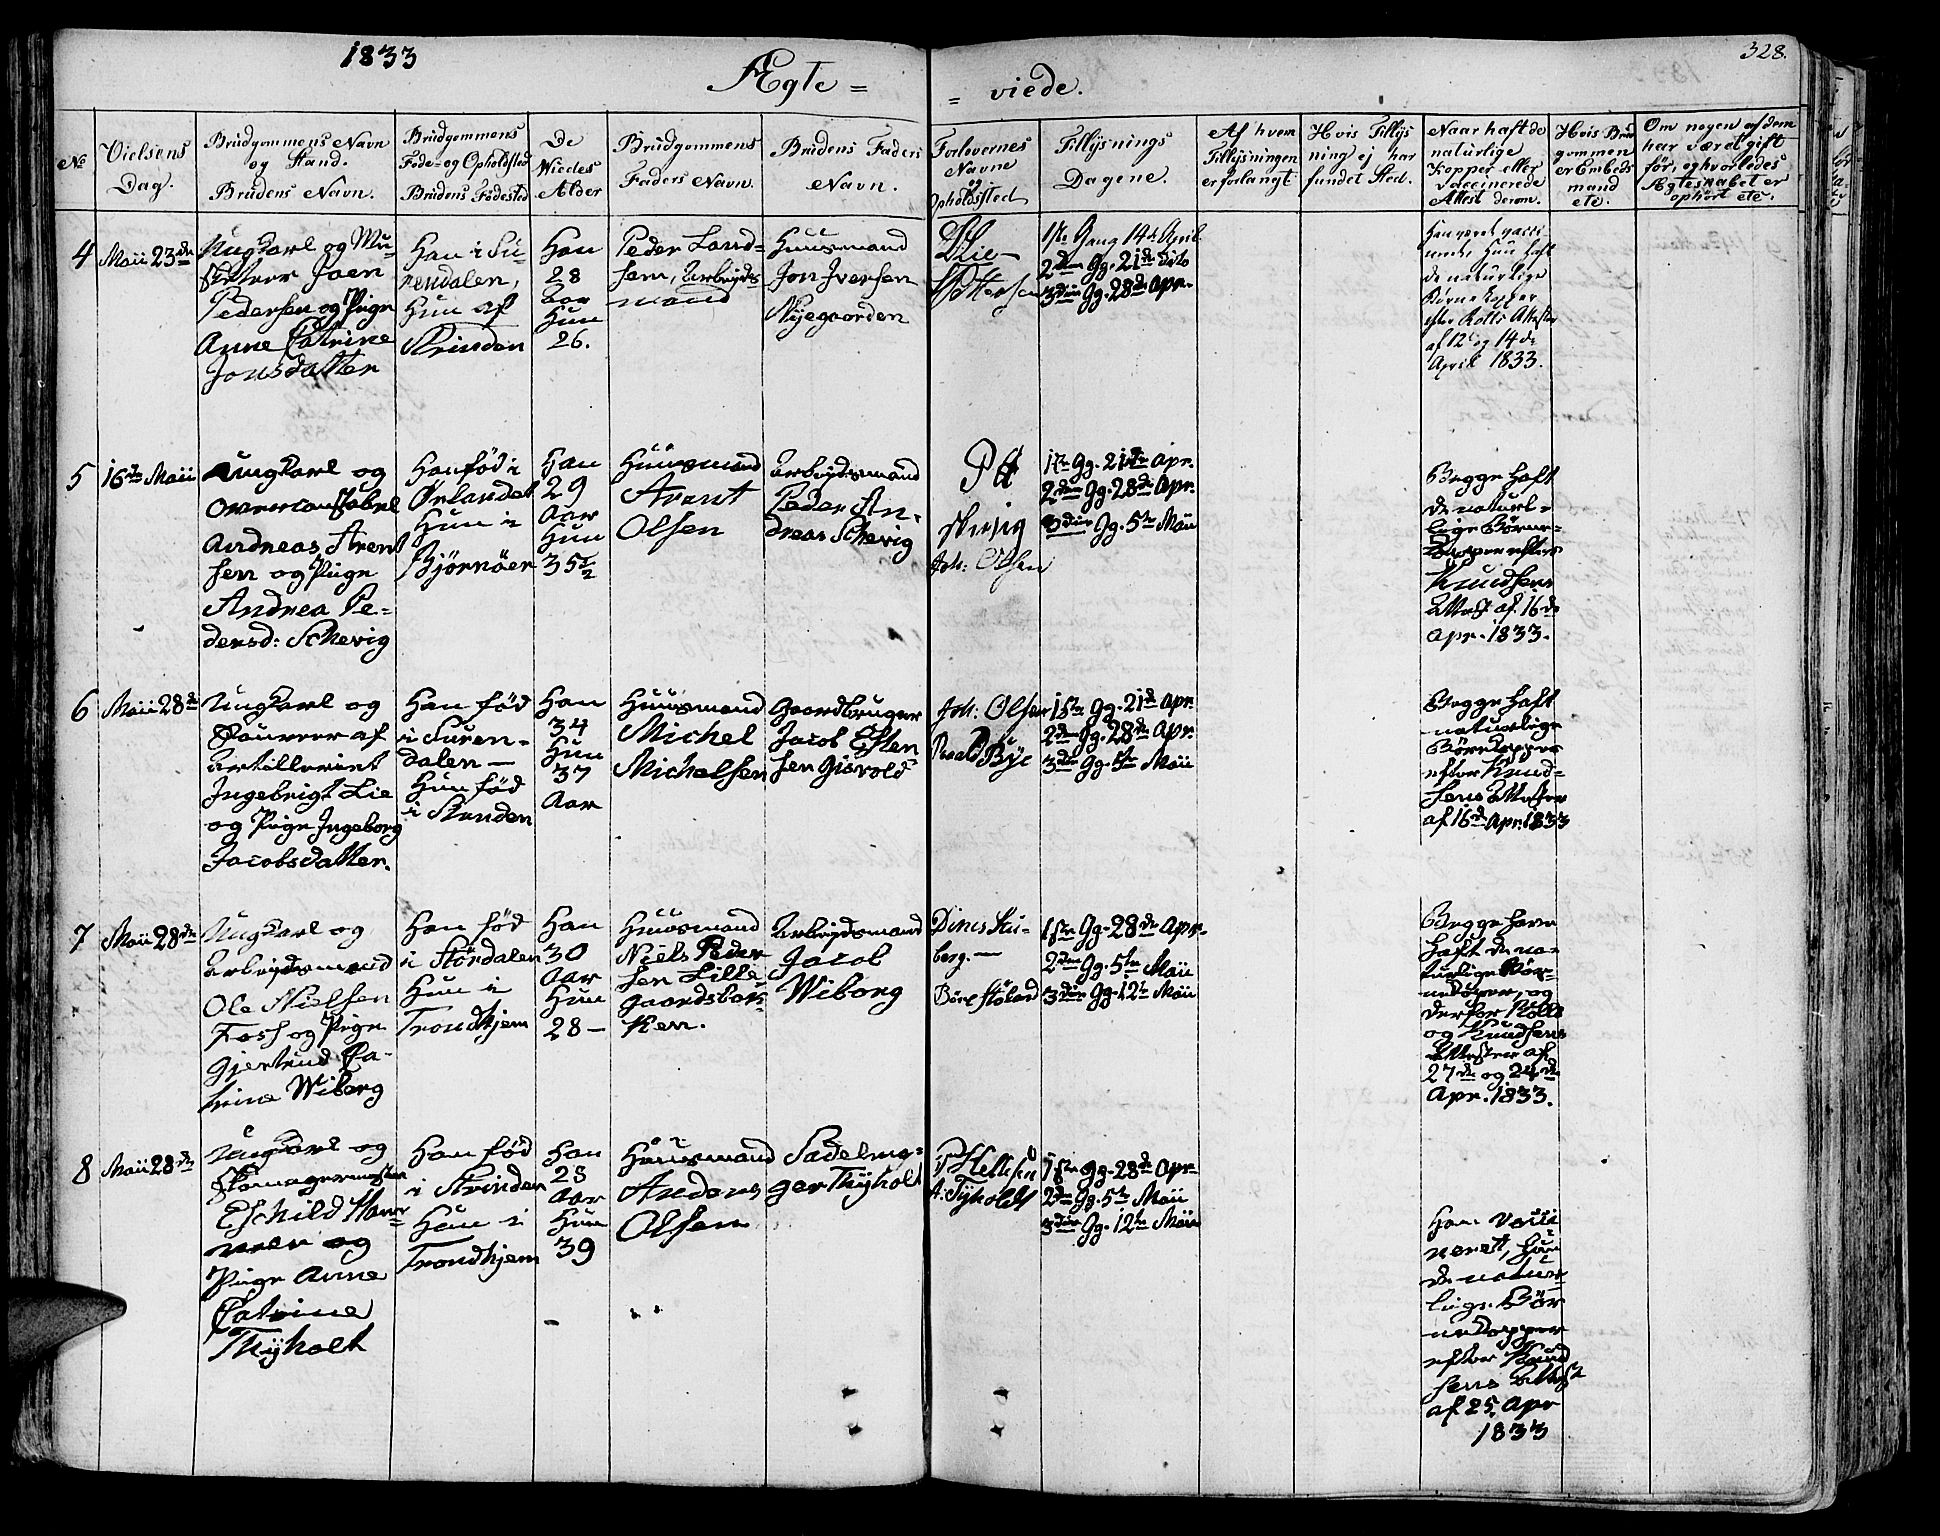 1833
328.
Ægte =
= viede.
No
Vielsens
Dag.
Brudgommens Navn
og Stand.
Brudens Navn.
Brudgommens
Føde- og Opholdsted
Brudens Fødested
De
Wiedes
Alder
Brudgommens
Faders Navn.
Brudens Faders
Navn.
Forlovernes
Navne
og
Opholdssted
Tillysnings
Dagene.
Af hvem
Tillysningen
er forlangt
Hvis Tillys
ning ej har
fundet Sted.
Naar haft de
naturlige
Kopper eller
Vaccinerede
Attest derom.
Hvis Brud
gommen
er Embeds
mand
etc.
Om nogen af dem
har været gift
før, og hvorledes
Ægteskabet er
ophørt etc.
4
Maii 23de
Ungkarl og Mu-
Joen
Pedersen og Pige
Anne Catrine
Jonsdatter
Han i Su-
rendalen,
Hun af
Strinden
Han
28
Aar
Hun
26.
Peder Land-
sem, Arbeids-
mand
Huusmand
Jon Iversen
Nyegaarden
Lie
1ste Gang 14de April
2den Gg. 21de dito
3die Gg. 28de Apr.
Han været vacci
neret, Hun haft
de naturlige
Børne Kopper
efter Rolls Attester
af 12te og 14de
April 1833.
5
16de Maii
Ungkarl og
Overconstabel
Andreas Arent
sen og Pige
Andrea Pe-
dersd: Schevig
Han fød i
Ørlandet
Hun i
Bjørnøer
Han
29
Aar
Hun
35½
Huusmand
Arent
Olsen
Arbeidsmand
Peder An-
dreas Schevig
Joh: Olsen
1ste Gg. 21de Apr.
2den Gg. 28de Apr.
3die Gg. 5te Maii
Begge haft
de naturl-
lige Børne-
Kopper efter
Knudsens
Attest af 16de
Apr. 1833.
6
Maii 28de
Ungkarl og
Skaurer af
Artilleriet
Ingebrigt Lie
og Pige Ingeborg
Jacobsdatter.
Han fød
i Suren-
dalen —
Hun fød
i Strinden
Han
34
Hun
37
Aar
Huusmand
Michel
Michelsen
Gaardbruger
Jacob Esten
sen Gisvold
Joh: Olsen
Bye
1ste Gg. 21de Apr.
2den Gg. 28de Apr.
3die Gg. 5te Maii
Begge haft
naturlige
Børnekopper
efter Knud-
sens Attester
af 16de Apr. 1833
7
Maii 28de
Ungkarl og
Arbeidsmand
Ole Nielsen
Foss og Pige
Gjertrud Ca-
trine Wiberg
Han fød
i Størdalen
Hun i
Trondhjem
Han
30
Aar
Hun
28 —
Huusmand
Niels Peder
sen Lille
gaardsbak
ken.
Arbeidsmand
Jacob
Wiborg
berg. —
1ste Gg. 28de Apr.
2den Gg. 5te Maii
3die Gg. 12te Maii
Begge have
haft de na-
turlige Bør-
nekopper, og
derfor Rolls
og Knudsens
Attester af
27de og 24de
Apr. 1833.
8
Maii 28de
Ungkarl og
Skomagermester
Eschild Ham-
meren og
Pige Anne
Catrine
Thyholt
Han fød
i Strinden
Hun i
Trondhjem
Han
28
Aar
Hun
39
Huusmand
Anders
Olsen
Sadelma-
ger Thyholt
A: Tyholdt
1ste Gg. 28de Apr.
2den Gg. 5te Maii
3die Gg. 12te Maii
Han vacci
neret, Hun
de natur-
lige Bør
nekopper
efter Knud
sens Attest
af 25. Apr
1833